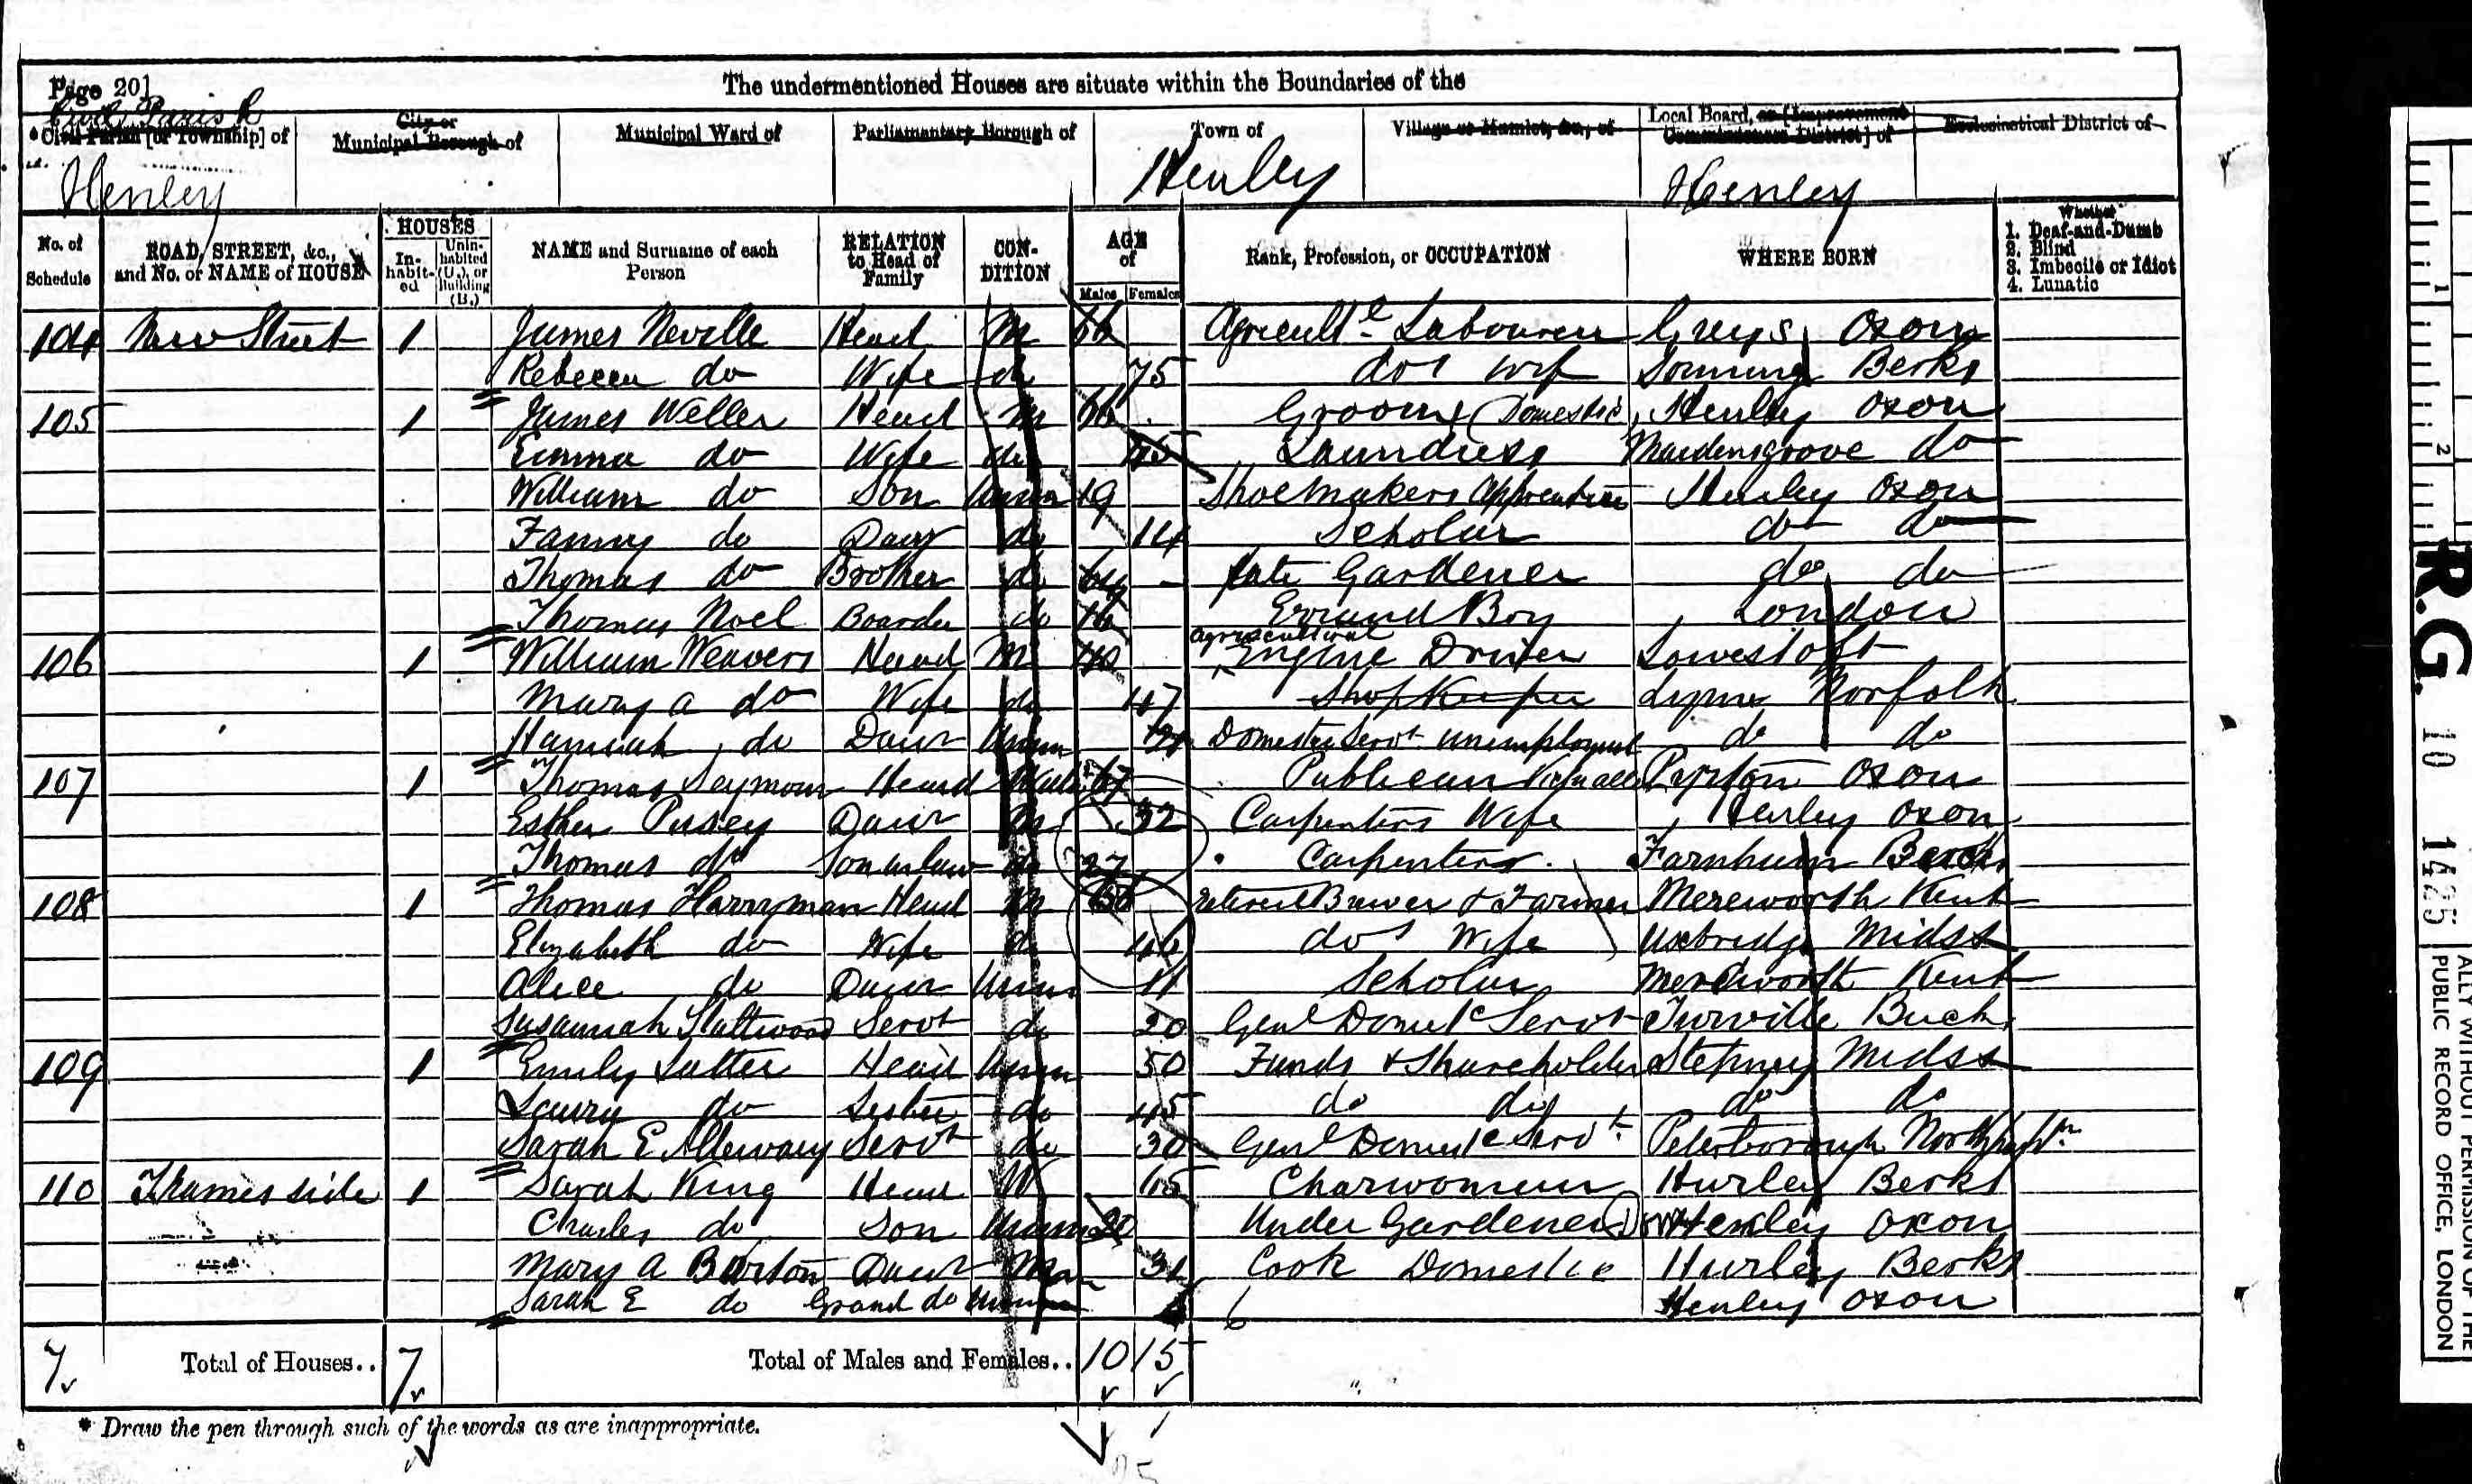 Page 20]
The undermentioned Houses are situate within the Boundaries of the
Civil Parish
* Civil Parish [or Township] of
City or Municipal Borough of
Municipal Ward of
Parliamentary Borough of
Town of
Village or Hamlet, &c., of
Local Board, or [Improvement Commissioners District] of
Ecclesiastical District of
Henley
Henley
Henley
No. of Schedule
ROAD, STREET, &c., and No. or NAME of HOUSE
HOUSES
In-habit-ed
Unin-habited (U.), or Building (B.)
NAME and Surname of each Person
RELATION to Head of Family
CON-DITION
AGE of
Males
Females
Rank, Profession, or OCCUPATION
WHERE BORN
Whether
1. Deaf-and-Dumb
2. Blind
3. Imbecile or Idiot
4. Lunatic
104 New Street 1 James Neville Head M Agricult.l Labourer Greys Oxon
Rebecca do Wife do 75 dos wife Sonning Berks
105 1 James Weller Head M Groom (Domestic) Henley Oxon
Emma do Wife do 45 Laundress Maidensgrove do
William do Son Unm 19 Shoemakers Apprentice Henley Oxon
Fanny do Daur do 14 Scholar do do
Thomas do Brother do 64 late Gardener do do
Thomas Noel Boarder do 16 Errand Boy London
106 1 William Weavers Head M agricultural Engine Driver Lowestoft
Mary A do Wife do 47 Shop Keeper Lynn Norfolk
Hannah do Daur Unm Domestic Servt unemployed do do
107 1 Thomas Seymour Head 67 Publican Victualler Pyrton Oxon
Esther Pusey Daur M 32 Carpenters Wife Henley Oxon
Thomas do Son in law do 27 Carpenter Farnham Bucks
108 1 Thomas Harryman Head M retired Brewer & Farmer Mereworth Kent
Elizabeth do Wife do 46 dos Wife Uxbridge Midsx
Alice do Daur Unm 11 Scholar Mereworth Kent
Susannah Servt do 20 Genl Domestc Servt Turville Buck
109 1 Emily Head Unm 50 Funds & Shareholder Stepney Midsx
do Sister do 45 do do do do
Sarah E Alleway Servt do 30 Genl Domestc Servt Peterborough
110 Thames side 1 Sarah King Head W 65 Charwoman Hurley Berks
Charles do Son Unm 20 Under Gardener Henley Oxon
Mary A Burton Daur Mar Cook Domestic Hurley Berks
Sarah E do Grand do 6 Henley Oxon
7 Total of Houses.. 7 Total of Males and Females.. 10 15
* Draw the pen through such of the words as are inappropriate.
25
1
2
R.G. 10 1425
ALLY WITHOUT PERMISSION OF THE
PUBLIC RECORD OFFICE, LONDON